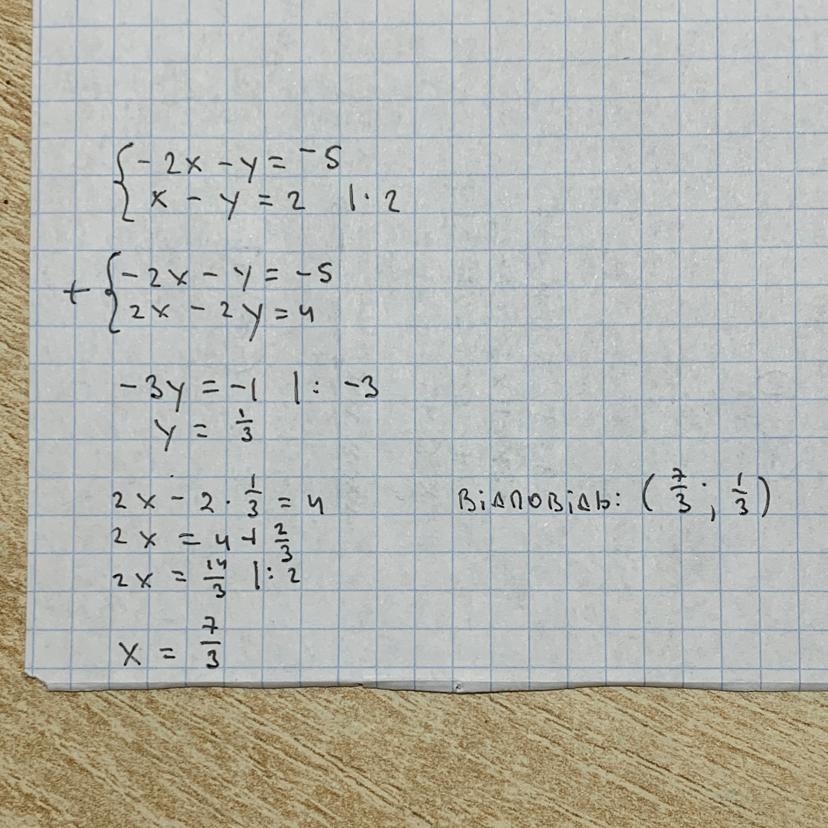 {-2x - y = -5
x - y = 2 |· 2
+ {-2x - y = -5
2x - 2y = 4
-3y = -1 |: -3
y = 1/3
2x - 2 · 1/3 = 4
2x = 4 + 2/3
2x = 14/3 |: 2
x = 7/3
Відповідь: (7/3; 1/3)